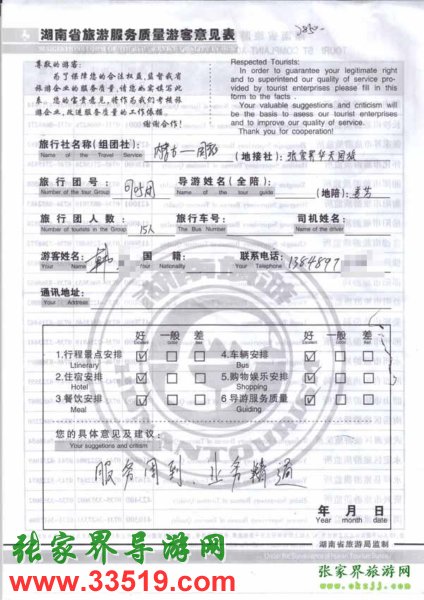 湖南省旅游服务质量游客意见表
2850
尊敬的游客：
为了保障您的合法权益,监督我省
旅游企业的服务质量,请您如实填写此
表。您的宝贵意见,将作为我们考核旅
游企业,改进服务质量的工作依据。
谢谢合作!
Respected Tourists:
In order to guarantee your legitimate right
and to superintend our quality of service pro-
vided by tourist enterprises please fill in this
form to the facts .
Your valuable suggestions and criticism will
be the basis to assess our tourist enterprises
and to improve our quality of service.
Thank you for cooperation!
旅行社名称(组团社):
Name of the Travel Service
(地接社): 张家界中天国旅
旅行团号:
Number of the tour Group
导游姓名(全陪):
Name of the tour guide
(地陪):
旅行团人数: 15人
Number of tourists in the Group
旅行车号:
The Bus Number
司机姓名:
Name of the driver
游客姓名: 韩
Your Name
国籍:
Your Nationality
联系电话: 1384897
Your Telephone
通讯地址:
Your Address
好 一般 差 好 一般 差
1.行程景点安排 ☑ ☐ ☐ 4.车辆安排 ☑ ☐ ☐
Ltinerary Bus
2.住宿安排 ☑ ☐ ☐ 5.购物娱乐安排 ☑ ☐ ☐
Hotel Shopping
3.餐饮安排 ☑ ☐ ☐ 6导游服务质量 ☑ ☐ ☐
Meal Guiding
您的具体意见及建议:
Your suggestions and critism
服务周到、业务精通
年 月 日
Year month date
湖南省旅游局监制
张家界导游网
www.33519.com
张家界旅游网
www.okzjj.com